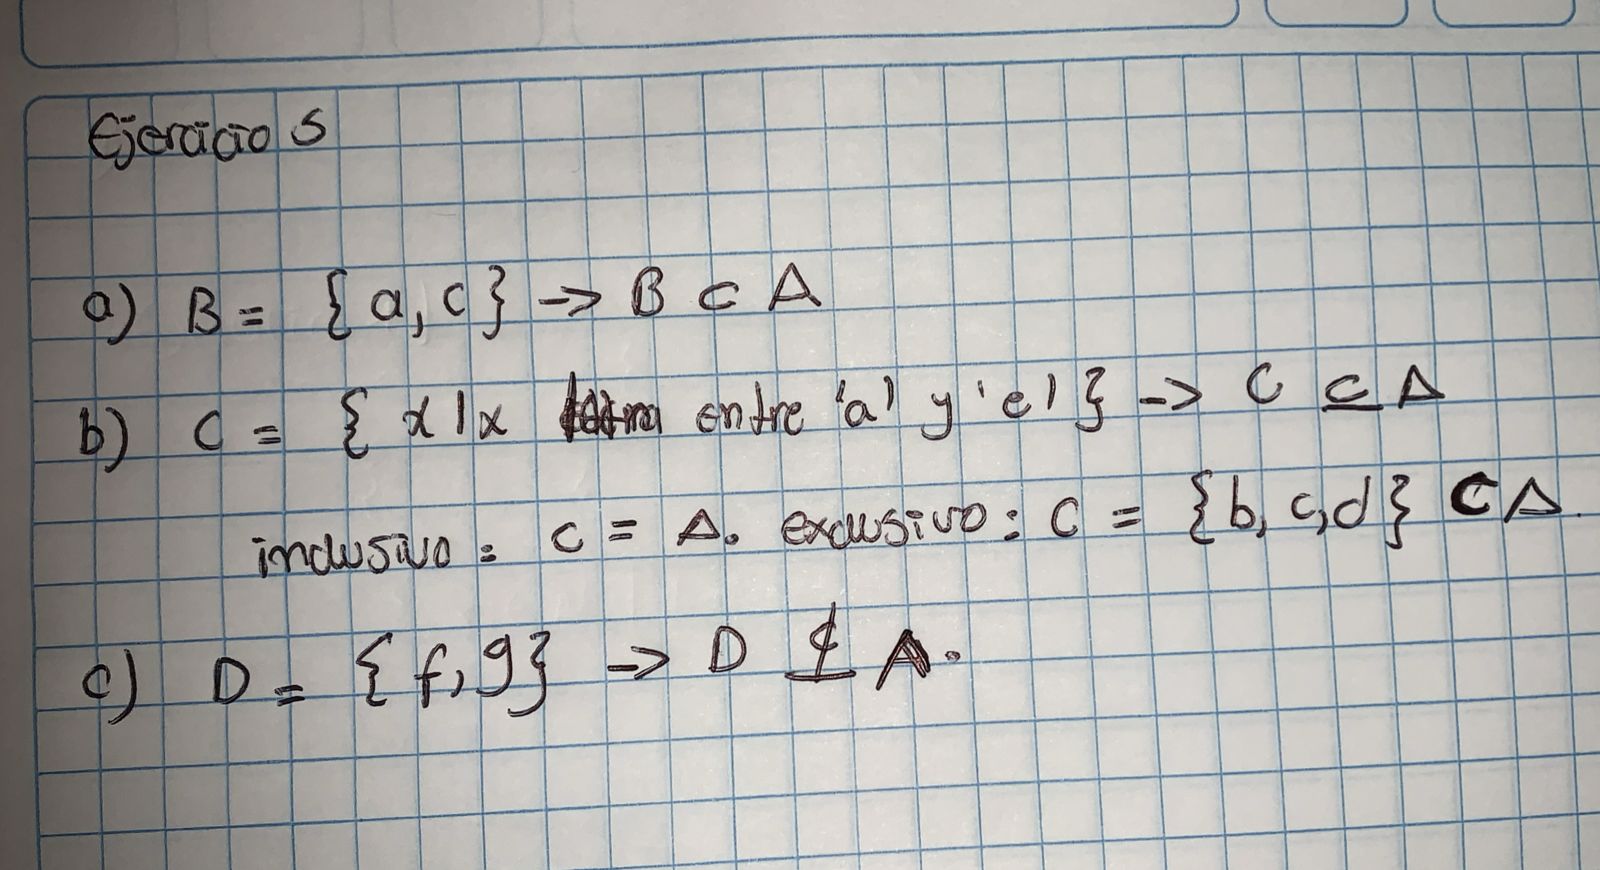 Ejercicio 5
a) B = {a, c} -> B ⊂ A
b) C = { x | x letra entre 'a' y 'e' } -> C ⊆ A
inclusivo: C = A. exclusivo: C = {b, c, d} ⊂ A.
c) D = {f, g} -> D ⊈ A.